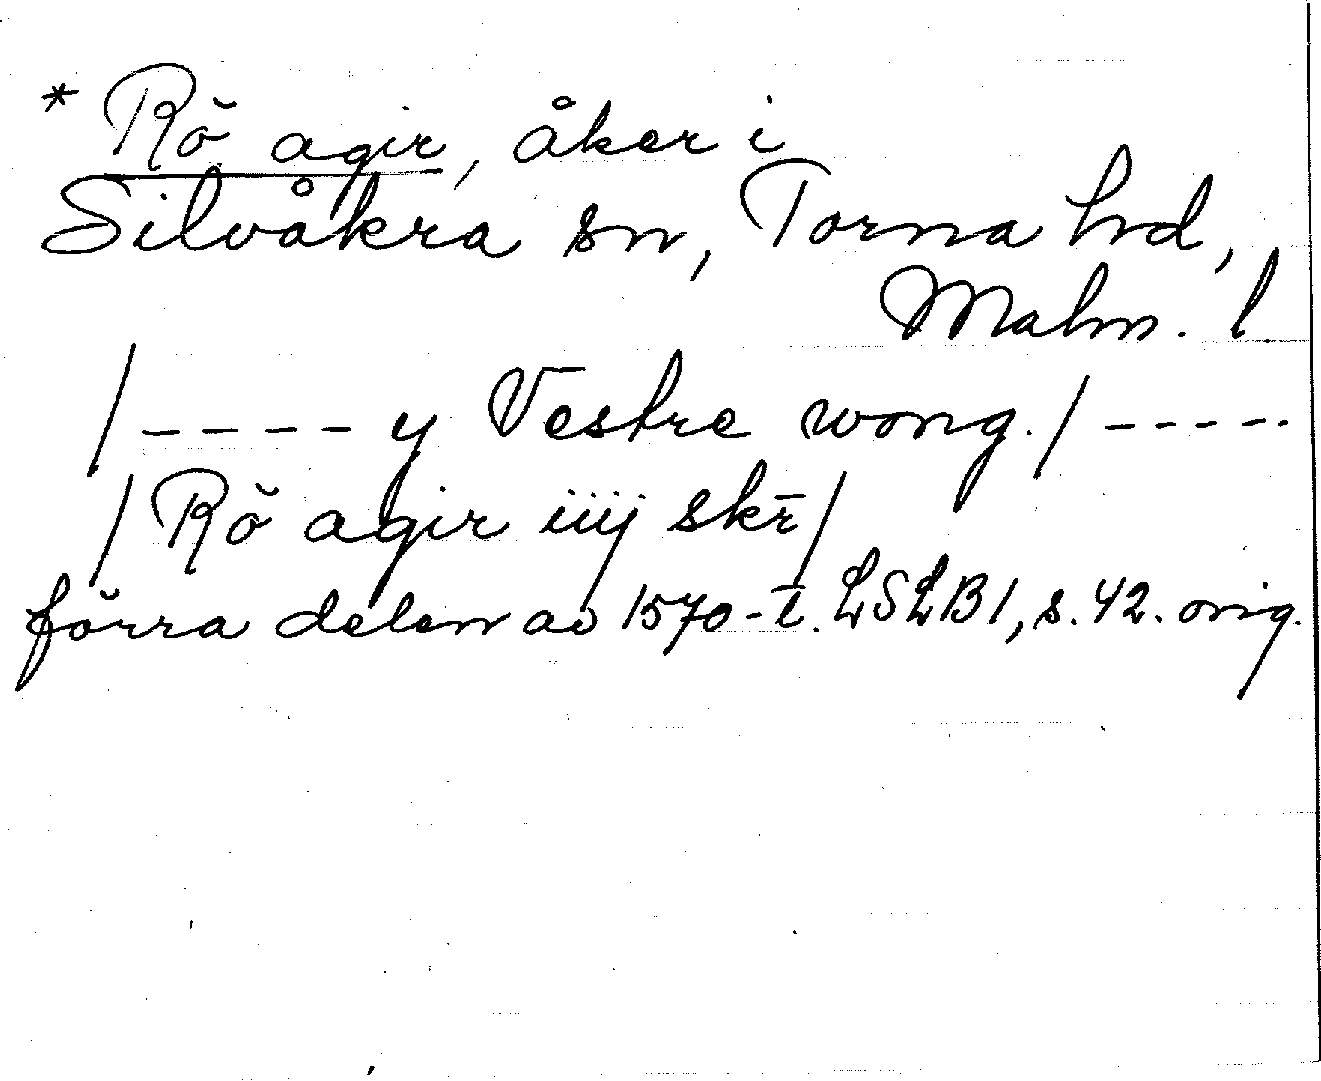 * Rŏ agir, åker i
Silvåkra sn, Torna hd,
Malm. l
/ - - - - y Vestre wong. / - - - - -
/ Rŏ agir iiij skr̄ /
förra delen av 1570-t. LSLB 1, s. 42. orig.